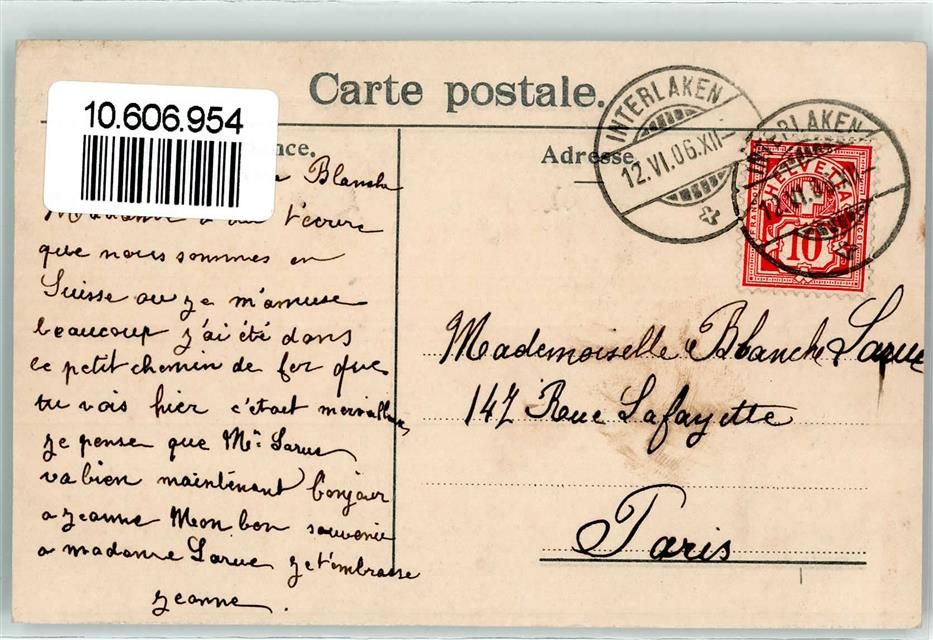 Carte postale.
10.606.954
nce.
Adresse
INTERLAKEN
12.VI.06.XII
INTERLAKEN
12.VI.0
HELVETIA
FRANCO
10
Blanche
t'écrire
que nous sommes en
Suisse ou je m'amuse
beaucoup j'ai été dans
ce petit chemin de fer que
tu vois hier c'était merveilleux
je pense que Mr Larue
va bien maintenant bonjour
a jeanne Mon bon souvenir
a madame Larue je t'embrasse
jeanne.
Mademoiselle Blanche Larue
147 Rue Lafayette
Paris